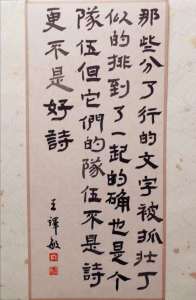 那些分了行的文字被抓壮丁
似的排到了一起的确也是个
隊伍但它們的隊伍不是詩
更不是好詩
王譯敏